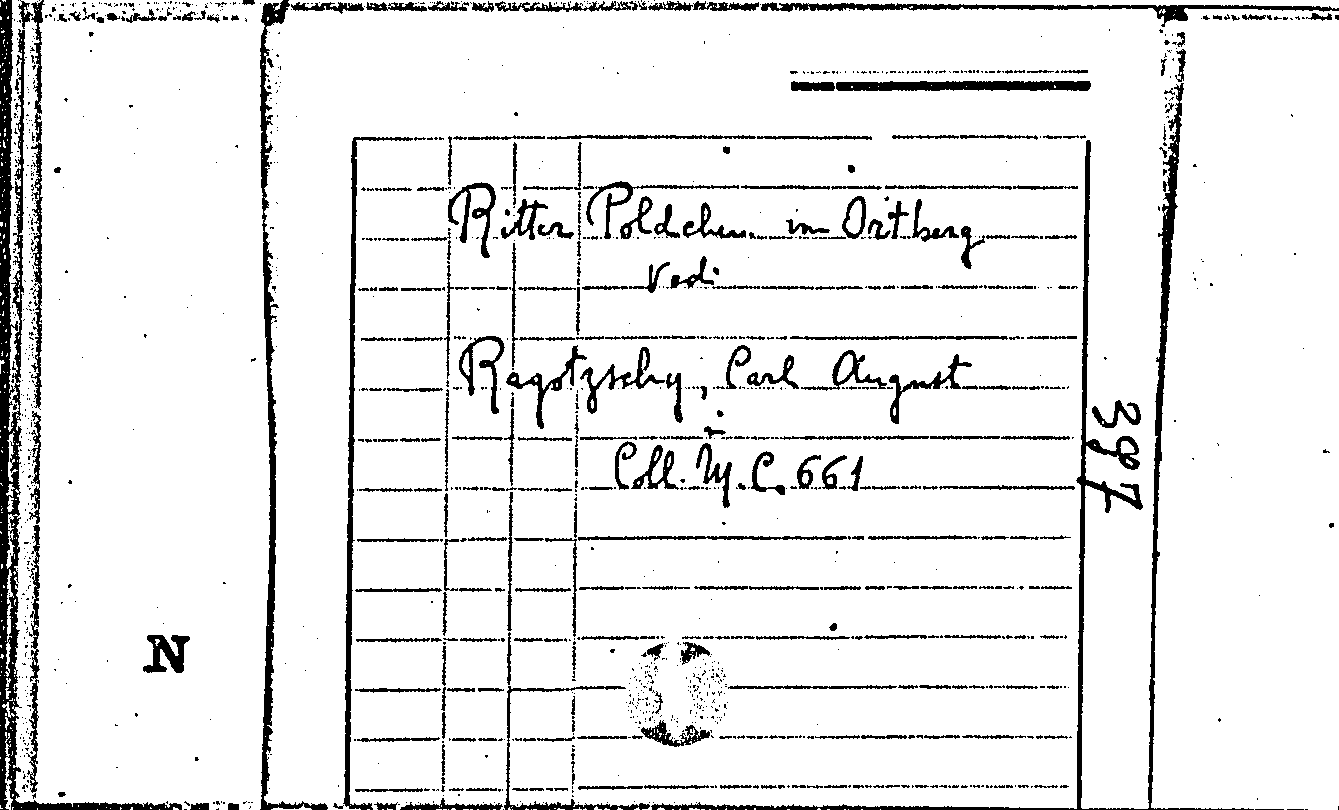 Ritter Poldchen im Ortberg
vedi
Ragotzschy, Carl August
in
Coll. M. C. 661
397
N